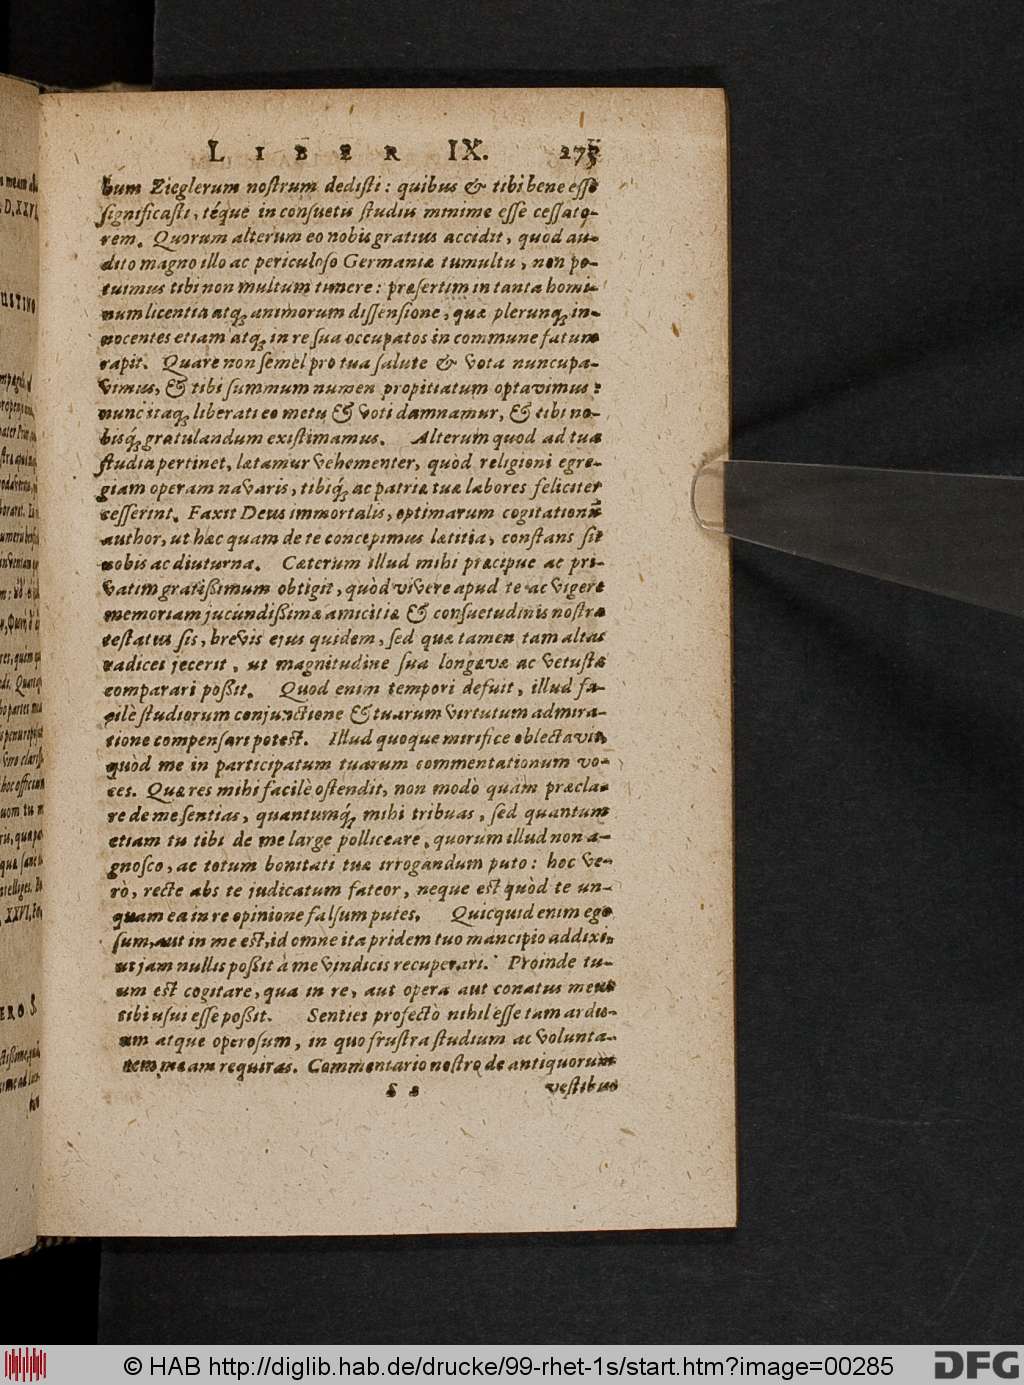 LIBER IX. 275
bum Zieglerum nostrum dedisti: quibus & tibi bene esse
significasti, téque in consuetis studiis minime esse cessato-
rem. Quorum alterum eo nobis gratius accidit, quod au-
dito magno illo ac periculoso Germaniæ tumultu, non po-
tuimus tibi non multum timere: præsertim in tanta homi-
num licentia atq; animorum dissensione, quæ plerunq; in-
nocentes etiam atq; in re sua occupatos in commune fatum
rapit. Quare non semel pro tua salute & vota nuncupa-
vimus, & tibi summum numen propitiatum optavimus:
nunc itaq; liberati eo metu & voti damnamur, & tibi no-
bisq́; gratulandum existimamus. Alterum quod ad tua
studia pertinet, lætamur vehementer, quòd religioni egre-
giam operam navaris, tibiq́; ac patriæ tuæ labores feliciter
cesserint. Faxit Deus immortalis, optimarum cogitationū
author, ut hæc quam de te concepimus lætitia, constans sit
nobis ac diuturna. Cæterum illud mihi præcipue ac pri-
vatim gratißimum obtigit, quòd vivere apud te ac vigere
memoriam jucundißimæ amicitiæ & consuetudinis nostræ
testatus sis, brevis ejus quidem, sed quæ tamen tam altas
radices jecerit, ut magnitudine sua longævæ ac vetustæ
comparari poßit. Quod enim tempori defuit, illud fa-
cilè studiorum conjunctione & tuarum virtutum admira-
tione compensari potest. Illud quoque mirifice oblectavit,
quòd me in participatum tuarum commentationum vo-
ces. Quæ res mihi facilè ostendit, non modo quàm præcla-
re de me sentias, quantumq́; mihi tribuas, sed quantum
etiam tu tibi de me large polliceare, quorum illud non a-
gnosco, ac totum bonitati tuæ irrogandum puto: hoc ve-
rò, recte abs te judicatum fateor, neque est quòd te un-
quam ea in re opinione falsum putes. Quicquid enim ego
sum, aut in me est, id omne ita pridem tuo mancipio addixi,
ut jam nullis poßit à me vindiciis recuperari. Proinde tu-
um est cogitare, qua in re, aut opera aut conatus meus
tibi usui esse poßit. Senties profectò nihil esse tam ardu-
um atque operosum, in quo frustra studium ac volunta-
tem meam requiras. Commentario nostro de antiquorum
S 2 vestibus
© HAB http://diglib.hab.de/drucke/99-rhet-1s/start.htm?image=00285
DFG